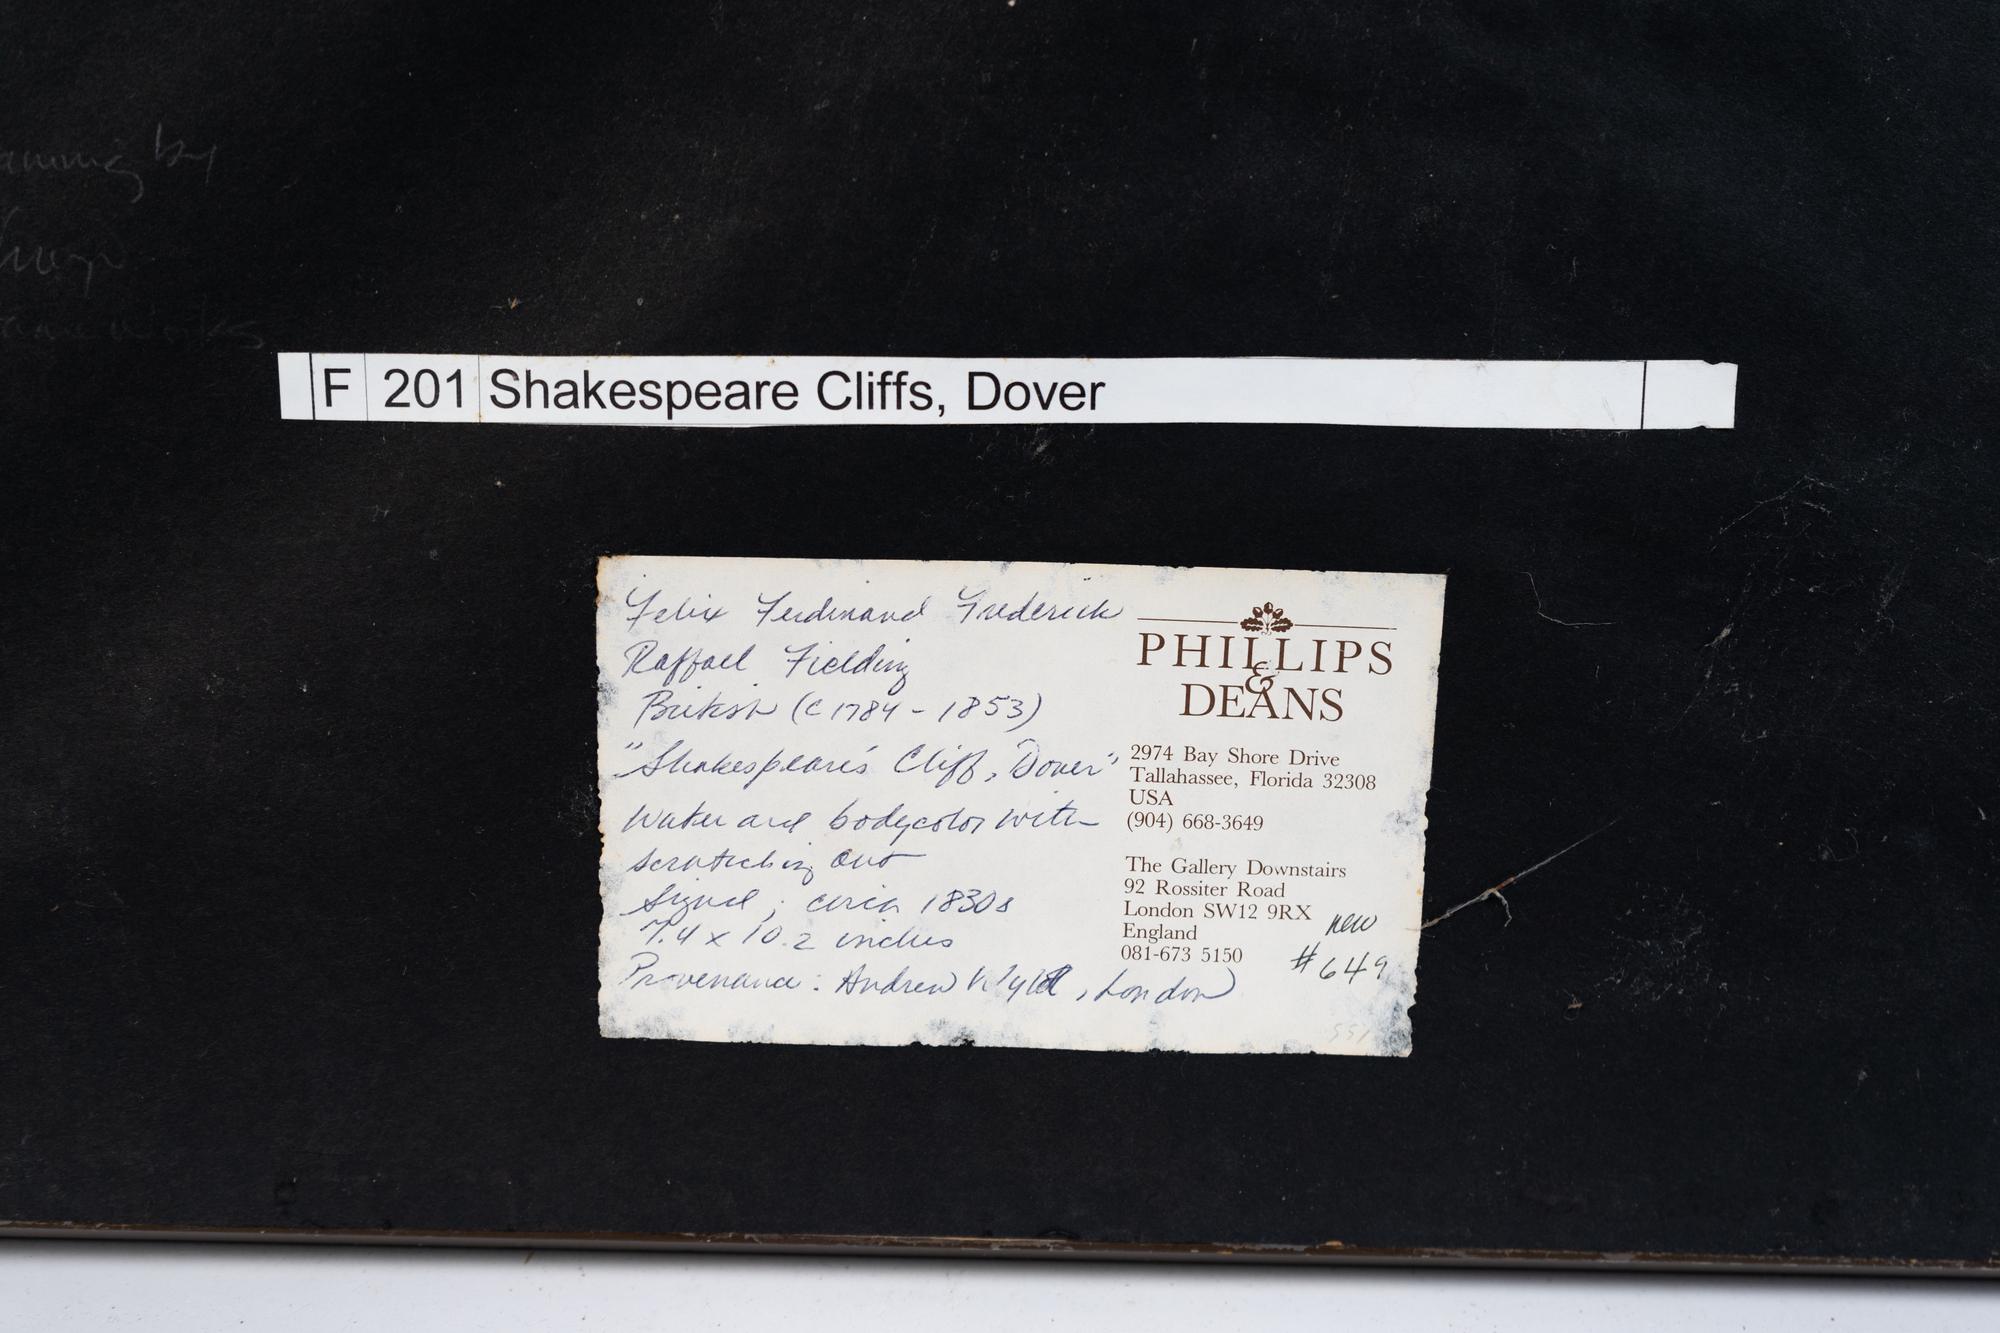 by
F 201 Shakespeare Cliffs, Dover
Felix Ferdinand Frederick
Raffael Fielding
British (c 1784 - 1853)
"Shakespeare's Cliff, Dover"
Water and bodycolor with
scratching out
Signed; circa 1830s
7.4 x 10.2 inches
Provenance: Andrew Wyld, London
PHILLIPS
&
DEANS
2974 Bay Shore Drive
Tallahassee, Florida 32308
USA
(904) 668-3649
The Gallery Downstairs
92 Rossiter Road
London SW12 9RX
England
081-673 5150
new
#649